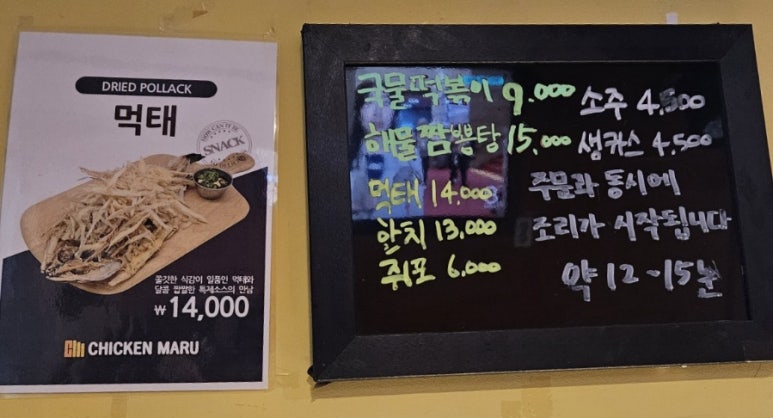 DRIED POLLACK
먹태
SNACK
쫄깃한 식감이 일품인 먹태와
달콤 짭짤한 특제소스의 만남
₩14,000
CHICKEN MARU
국물떡볶이 9.000
해물짬뽕탕 15.000
먹태 14.000
한치 13,000
쥐포 6.000
소주 4,500
생카스 4.500
주문과 동시에
조리가 시작됩니다
약 12-15분